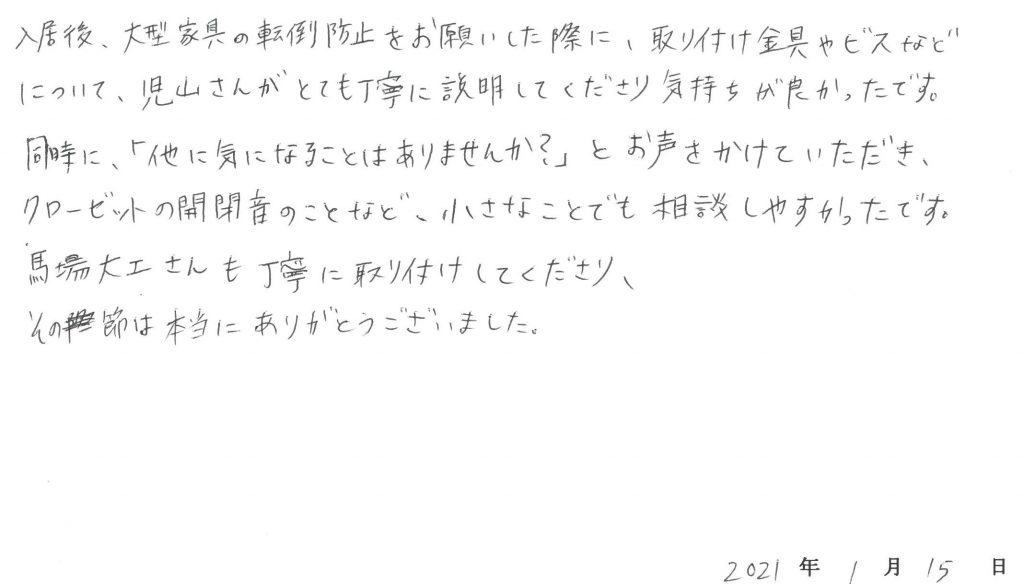 入居後、大型家具の転倒防止をお願いした際に、取り付け金具やビスなど
について、児山さんがとても丁寧に説明してくださり気持ちが良かったです。
同時に、「他に気になることはありませんか?」とお声をかけていただき、
クローゼットの開閉音のことなど、小さなことでも相談しやすかったです。
馬場大工さんも丁寧に取り付けしてくださり、
その節は本当にありがとうございました。
2021年1月15日